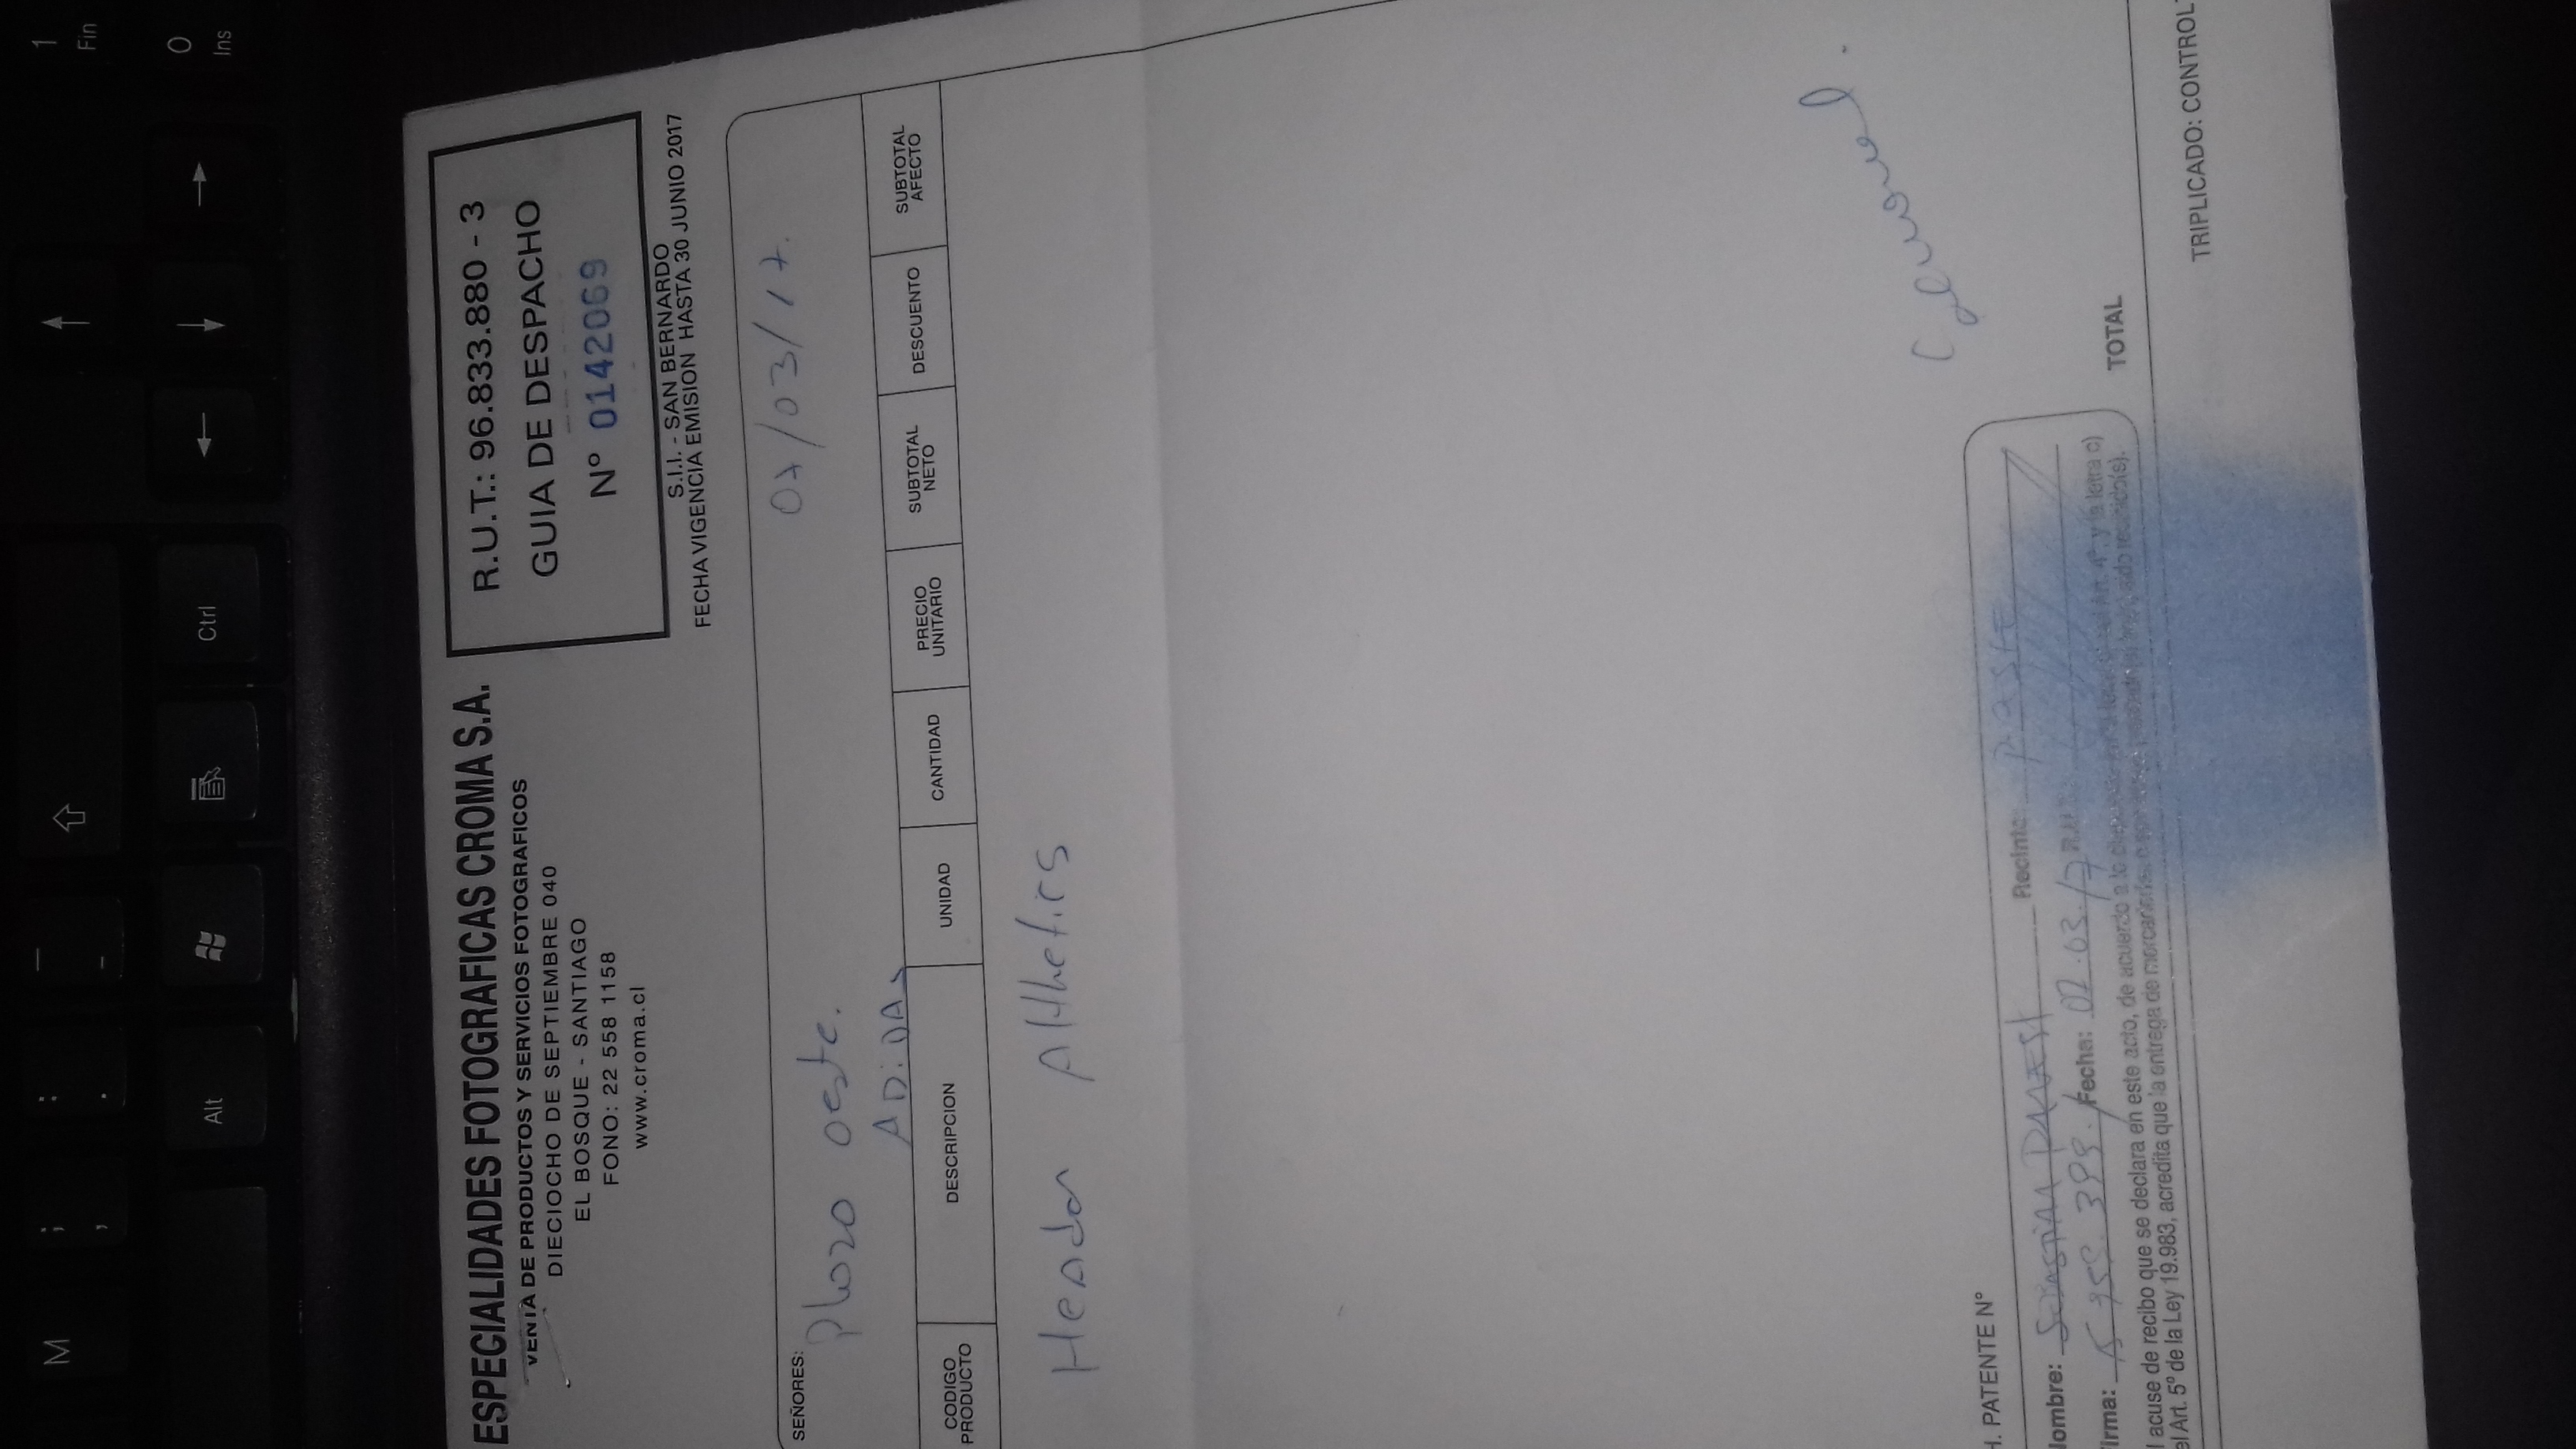 M ; , : . — –
1
Fin
Alt Ctrl
0
Ins
ESPECIALIDADES FOTOGRAFICAS CROMA S.A.
VENTA DE PRODUCTOS Y SERVICIOS FOTOGRAFICOS
DIECIOCHO DE SEPTIEMBRE 040
EL BOSQUE - SANTIAGO
FONO: 22 558 1158
www.croma.cl
R.U.T.: 96.833.880 - 3
GUIA DE DESPACHO
Nº 0142069
S.I.I. - SAN BERNARDO
FECHA VIGENCIA EMISION HASTA 30 JUNIO 2017
SEÑORES: Plaza oeste. 07/03/17.
ADiDAs
CODIGO PRODUCTO DESCRIPCION UNIDAD CANTIDAD PRECIO UNITARIO SUBTOTAL NETO DESCUENTO SUBTOTAL AFECTO
Header Althetics
H. PATENTE Nº
Nombre: Recinto:
Firma: Fecha: 07.03.17
l acuse de recibo que se declara en este acto, de acuerdo a lo y la letra c)
el Art. 5º de la Ley 19.983, acredita que la entrega de mercaderías recibido(s).
TOTAL
TRIPLICADO: CONTROL